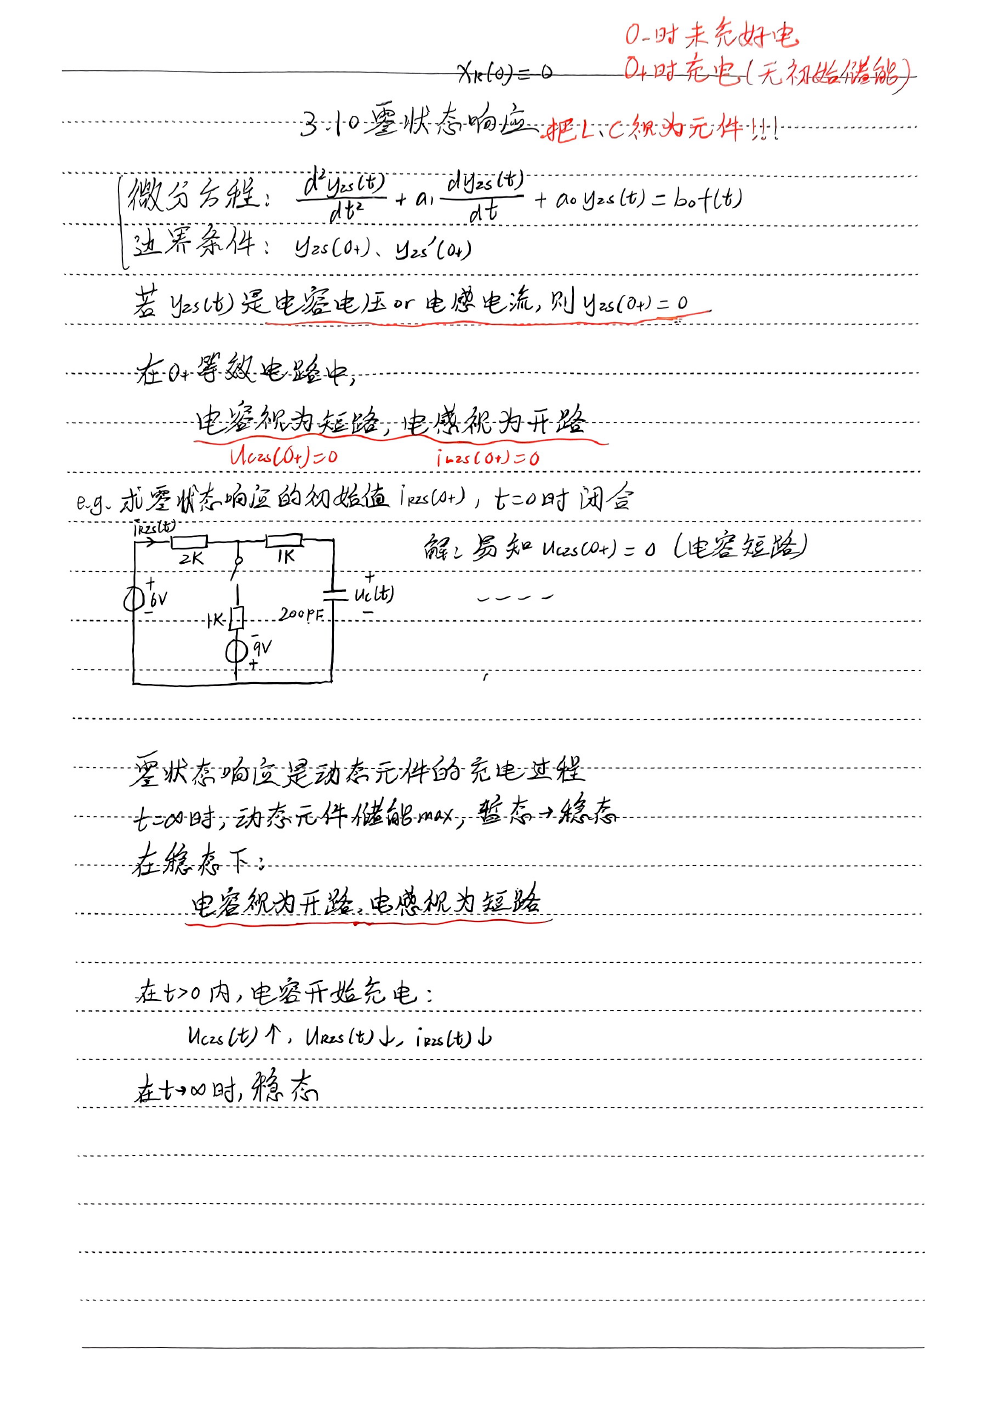 0-时未充好电
0+时充电(无初始储能)
xk(0)=0
3.10 零状态响应 把L、C视为元件!!!
微分方程: d²yzs(t)/dt² + a₁ dyzs(t)/dt + a₀yzs(t) = b₀f(t)
边界条件: yzs(0+)、yzs'(0+)
若yzs(t)是电容电压or电感电流,则yzs(0+)=0
在0+等效电路中,
电容视为短路,电感视为开路
uczs(0+)=0 iLzs(0+)=0
e.g. 求零状态响应的初始值iRzs(0+), t=0时闭合
iRzs(t)
2K 1K
解: 易知uczs(0+)=0 (电容短路)
+ 6V -
1K
200PF
+ uc(t) -
- 9V +
零状态响应是动态元件的充电过程
t=∞时,动态元件储能max,暂态→稳态
在稳态下:
电容视为开路,电感视为短路
在t>0内,电容开始充电:
uczs(t)↑, uRzs(t)↓, iRzs(t)↓
在t→∞时,稳态